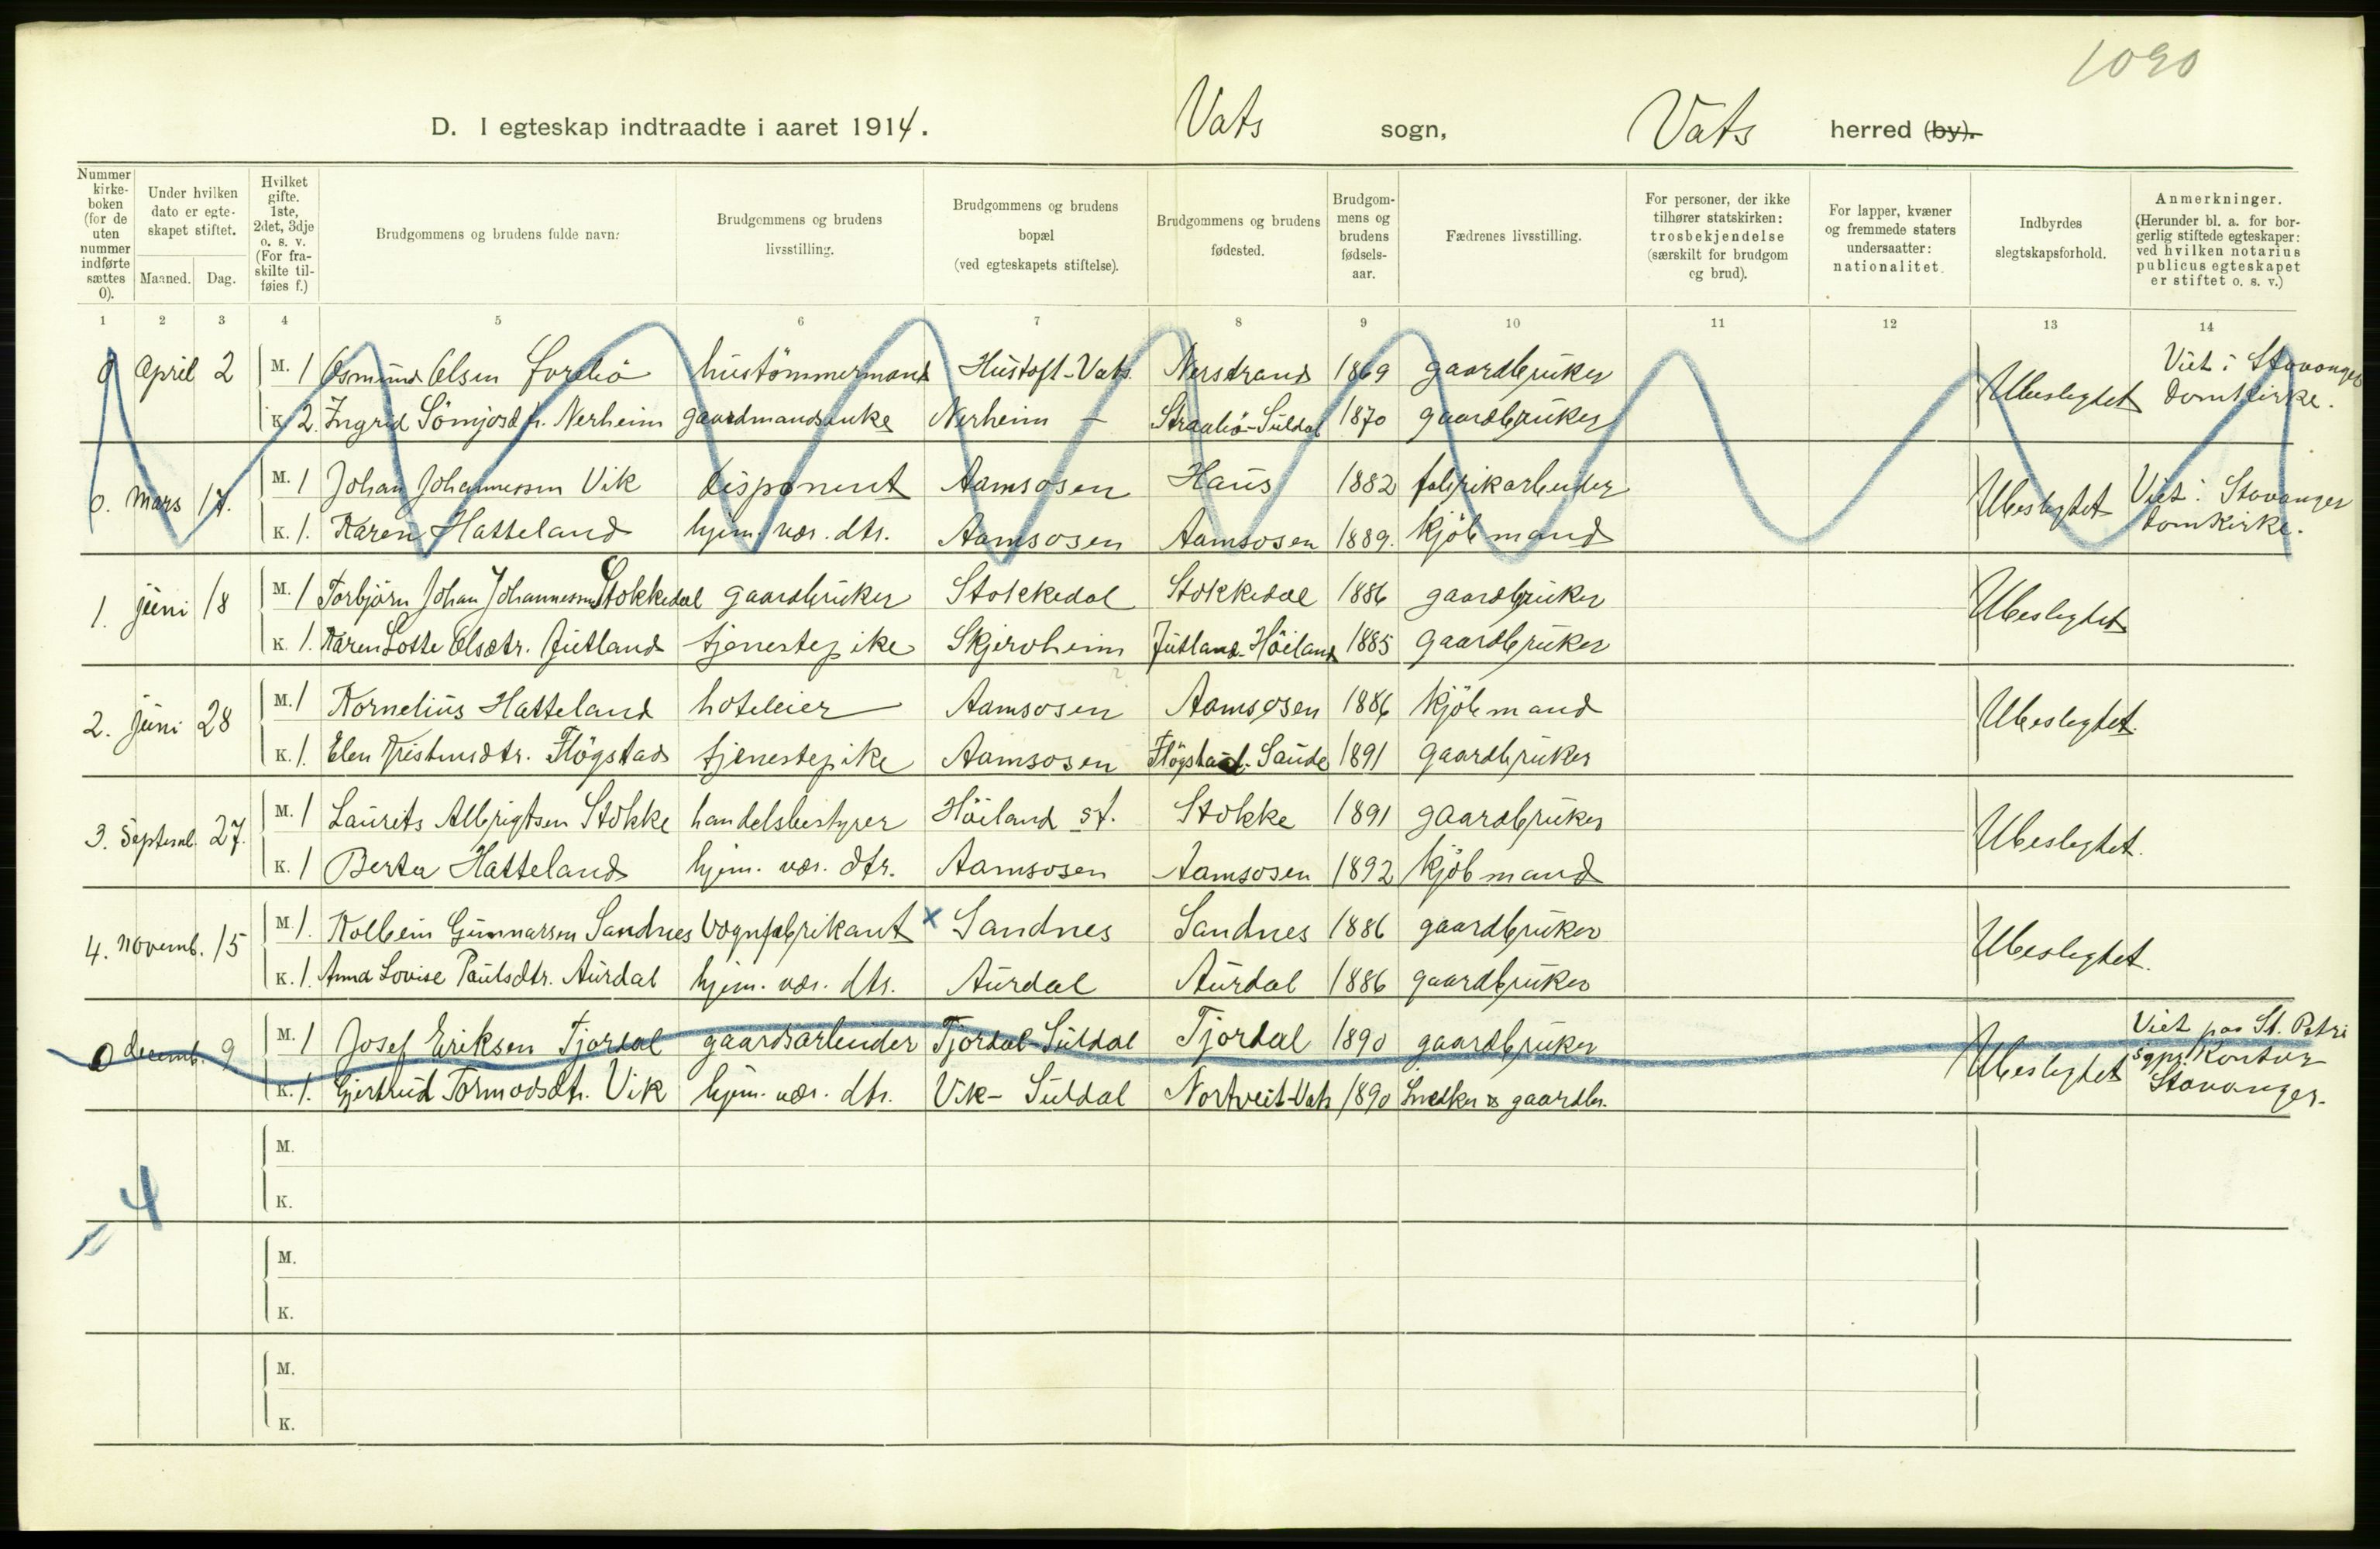 1090
D. I egteskap indtraadte i aaret 1914. Vats sogn, Vats herred (by).
Nummer kirke-boken (for de uten nummer indførte sættes 0).
Under hvilken dato er egte-skapet stiftet.
Maaned. Dag.
Hvilket gifte. 1ste, 2det, 3dje o. s. v. (For fra-skilte til-føies f.)
Brudgommens og brudens fulde navn:
Brudgommens og brudens livsstilling.
Brudgommens og brudens bopæl (ved egteskapets stiftelse).
Brudgommens og brudens fødested.
Brudgom-mens og brudens fødsels-aar.
Fædrenes livsstilling.
For personer, der ikke tilhører statskirken: trosbekjendelse (særskilt for brudgom og brud).
For lapper, kvæner og fremmede staters undersaatter: nationalitet.
Indbyrdes slegtskapsforhold.
Anmerkninger. (Herunder bl. a. for bor-gerlig stiftede egteskaper: ved hvilken notarius publicus egteskapet er stiftet o. s. v.)
1 2 3 4 5 6 7 8 9 10 11 12 13 14
0 April 2 M. 1 Osmund Olsen hustömmermand Hustoft-Vats. Nerstrand 1869 gaardbruker Ubeslegtet Viet i Stavanger Domkirke.
K. 2. Ingrid Nerheim gaardmandsenke Nerheim - Suldal 1870 gaardbruker
0. Mars 17. M. 1 Johan Johannessen Vik disponent Aamsosen Haus 1882 fabrikarbeider Ubeslegtet Viet i Stavanger Domkirke.
K. 1. Karen Hatteland hjem. vær. dtr. Aamsosen Aamsosen 1889. kjöbmand
1. juni 18 M. 1 Torbjörn Johan Johannessen Stokkedal gaardbruker Stokkedal Stokkedal 1886 gaardbruker Ubeslegtet
K. 1. Karen Lotte Olsdtr. Jutland tjenestepike Skjerheim Jutland-Höiland 1885 gaardbruker
2. juni 28 M. 1 Kornelius Hatteland hoteleier Aamsosen Aamsosen 1886 kjöbmand Ubeslegtet.
K. 1. Elen Kristensdtr. Flögstad tjenestepike Aamsosen Flögstad-Saude 1891 gaardbruker
3. Septemb. 27. M. 1 Laurits Albrigtsen Stokke handelsbestyrer Höiland st. Stokke 1891 gaardbruker Ubeslegtet.
K. 1 Berta Hatteland hjem. vær. dtr. Aamsosen Aamsosen 1892 kjöbmand
4. novemb. 15 M. 1. Kolbein Gunnarsen Sandnes vognfabrikant x Sandnes Sandnes 1886 gaardbruker Ubeslegtet.
K. 1. Anna Lovise Paulsdtr. Aurdal hjem. vær. dtr. Aurdal Aurdal 1886 gaardbruker
0 decemb. 9 M. 1 Josef Eriksen Tjordal gaardsarbeider Tjordal-Suldal Tjordal 1890 gaardbruker Ubeslegtet Viet paa St. Petri sgpr. Kontor Stavanger.
K. 1. Gjertrud Tormodsdtr. Vik hjem. vær. dtr. Vik - Suldal Nortveit-Vats 1890 Snedker & gaardbr.
M.
K.
4
M.
K.
M.
K.